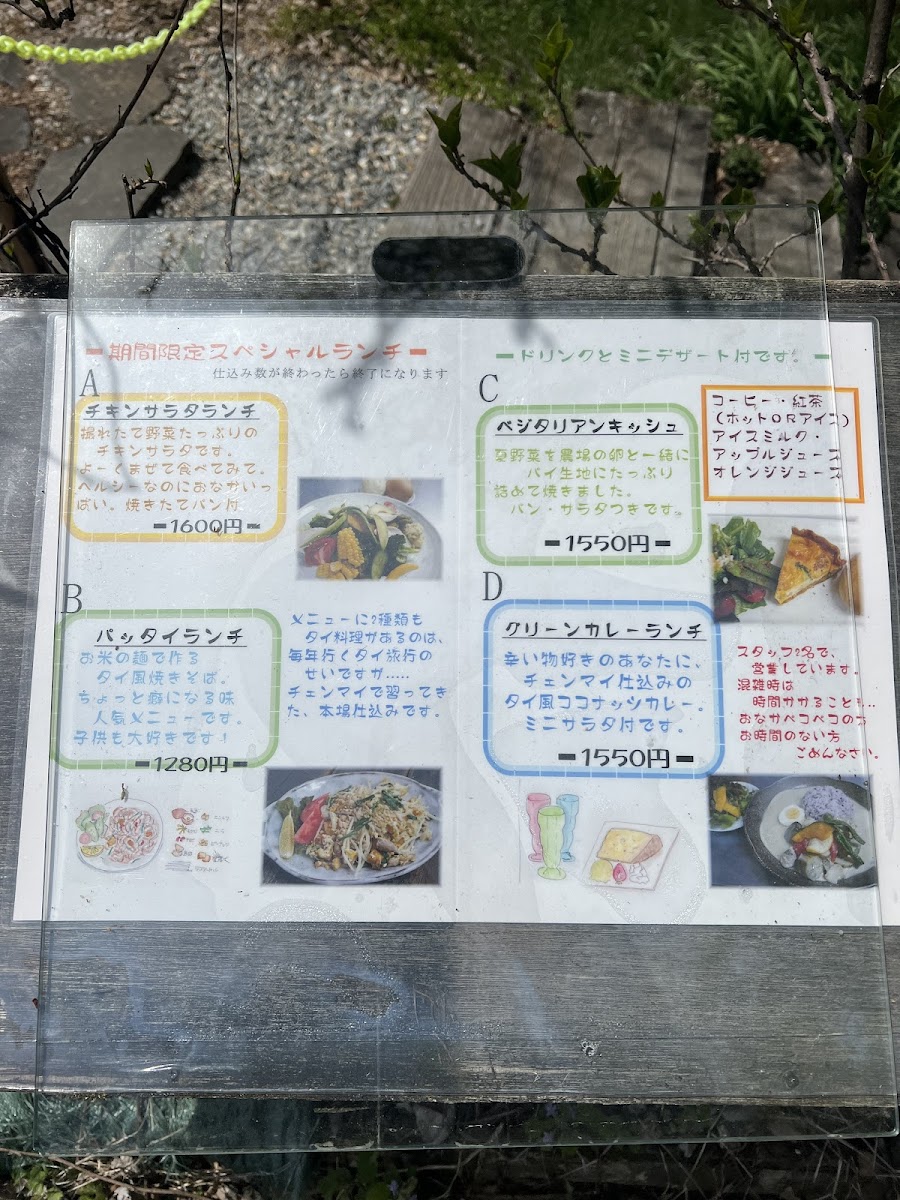 期間限定スペシャルランチ
仕込み数が終わったら終了になります
A
チキンサラダランチ
採れたて野菜たっぷりの
チキンサラダです。
よーくまぜて食べてみて。
ヘルシーなのにおなかいっ
ぱい。焼きたてパン付
1600円
B
パッタイランチ
お米の麺で作る
タイ風焼きそば。
ちょっと癖になる味
人気メニューです。
子供も大好きです!
1280円
メニューに2種類も
タイ料理があるのは、
毎年行くタイ旅行の
せいですが.....
チェンマイで習ってき
た、本場仕込みです。
ドリンクとミニデザート付です。
C
ベジタリアンキッシュ
夏野菜を農場の卵と一緒に
パイ生地にたっぷり
詰めて焼きました。
パン・サラダつきです。
1550円
コーヒー・紅茶
(ホットORアイス)
アイスミルク・
アップルジュース
オレンジジュース
D
グリーンカレーランチ
辛い物好きのあなたに、
チェンマイ仕込みの
タイ風ココナッツカレー。
ミニサラダ付です。
1550円
スタッフ2名で、
営業しています。
混雑時は
時間かかることも..
おなかペコペコの方
お時間のない方
ごめんなさい。